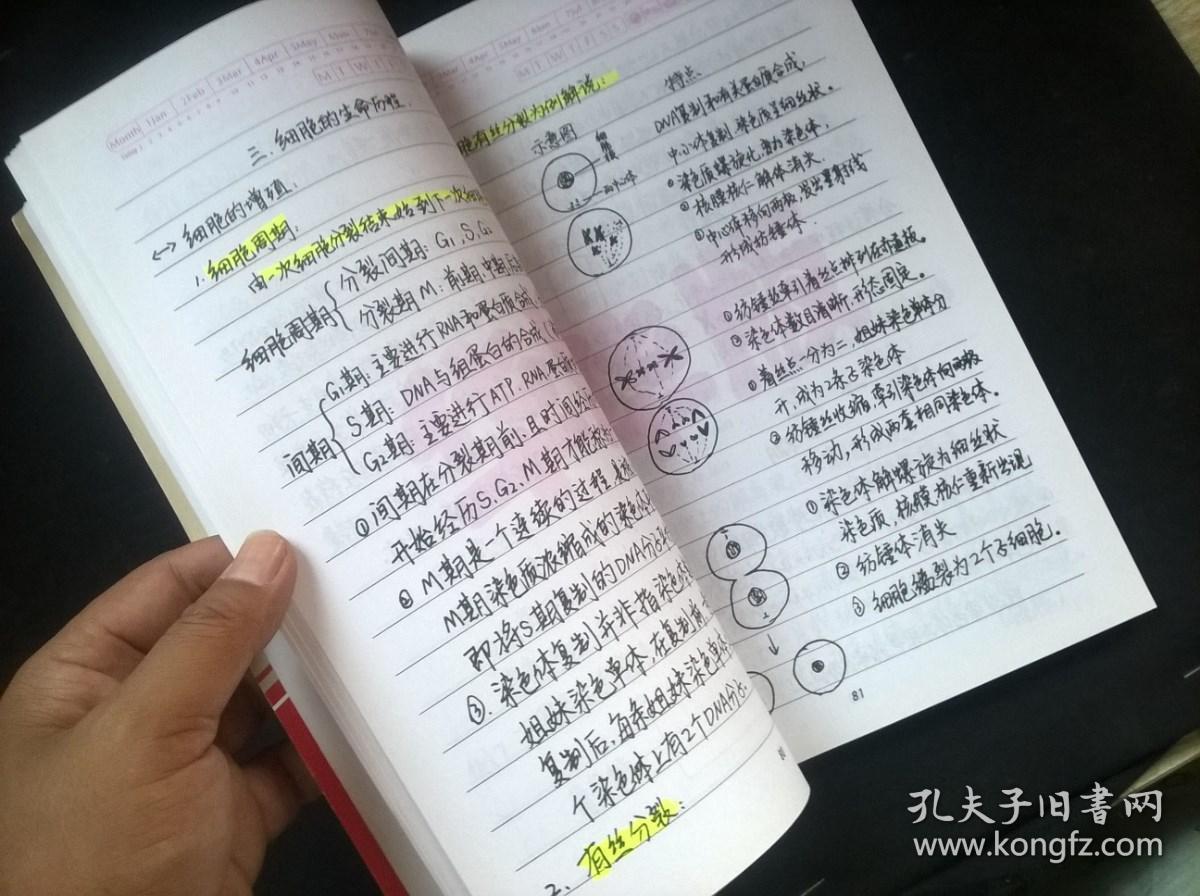 Month 1Jan 2Feb 3Mar 4Apr 5May 6Jun
M T W T
三、细胞的生命历程
<一> 细胞的增殖:
1. 细胞周期:
由一次细胞分裂结束始到下一次细胞
细胞周期
分裂间期: G₁,S,G₂
分裂期 M: 前期,中期,后
间期
G₁期: 主要进行RNA和蛋白质合成
S期: DNA与组蛋白的合成
G2期: 主要进行ATP、RNA、蛋白
①间期在分裂期前,且时间
开始经历S、G2、M期才能
② M期是一个连续的过程
M期染色质浓缩成的染色体
即将S期复制的DNA分
③. 染色体复制并非指染色体
姐妹染色单体,在复制
复制后,每条姐妹染色单体
个染色体上有2个DNA分
2、有丝分裂:
3Mar 4Apr 5May 6Jun
M T W T F S S
胞有丝分裂为例解说:
示意图
特点
DNA复制和有关蛋白质合成,
中心体复制,染色质呈细丝状。
中心体
①染色质螺旋化,变为染色体,
②核膜核仁解体消失.
③中心体移向两极,发出星射线
形成纺锤体.
①纺锤丝牵引着丝点排列在赤道板。
②染色体数目清晰,形态固定。
①着丝点一分为二,姐妹染色单体分
开,成为2条子染色体
②纺锤丝收缩,牵引染色体向两极
移动,形成两套相同染色体。
① 染色体解螺旋为细丝状
染色质,核膜、核仁重新出现
② 纺锤体消失
③ 细胞缢裂为2个子细胞。
81
孔夫子旧书网
www.kongfz.com